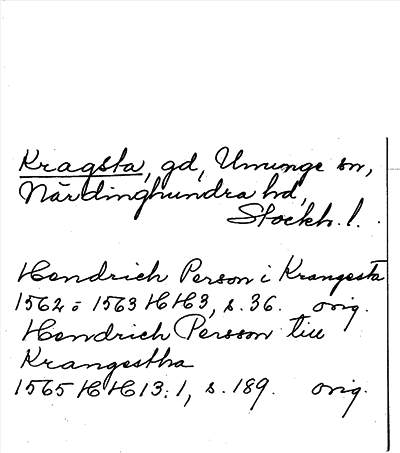 Kragsta, gd, Ununge sn,
Närdinghundra hd,
Stockh. l.
Hendrich Person i Krangesta
1562 o 1563 HH3, s. 36. orig.
Hendrich Persson till
Krangestha
1565 HH13:1, s. 189. orig.